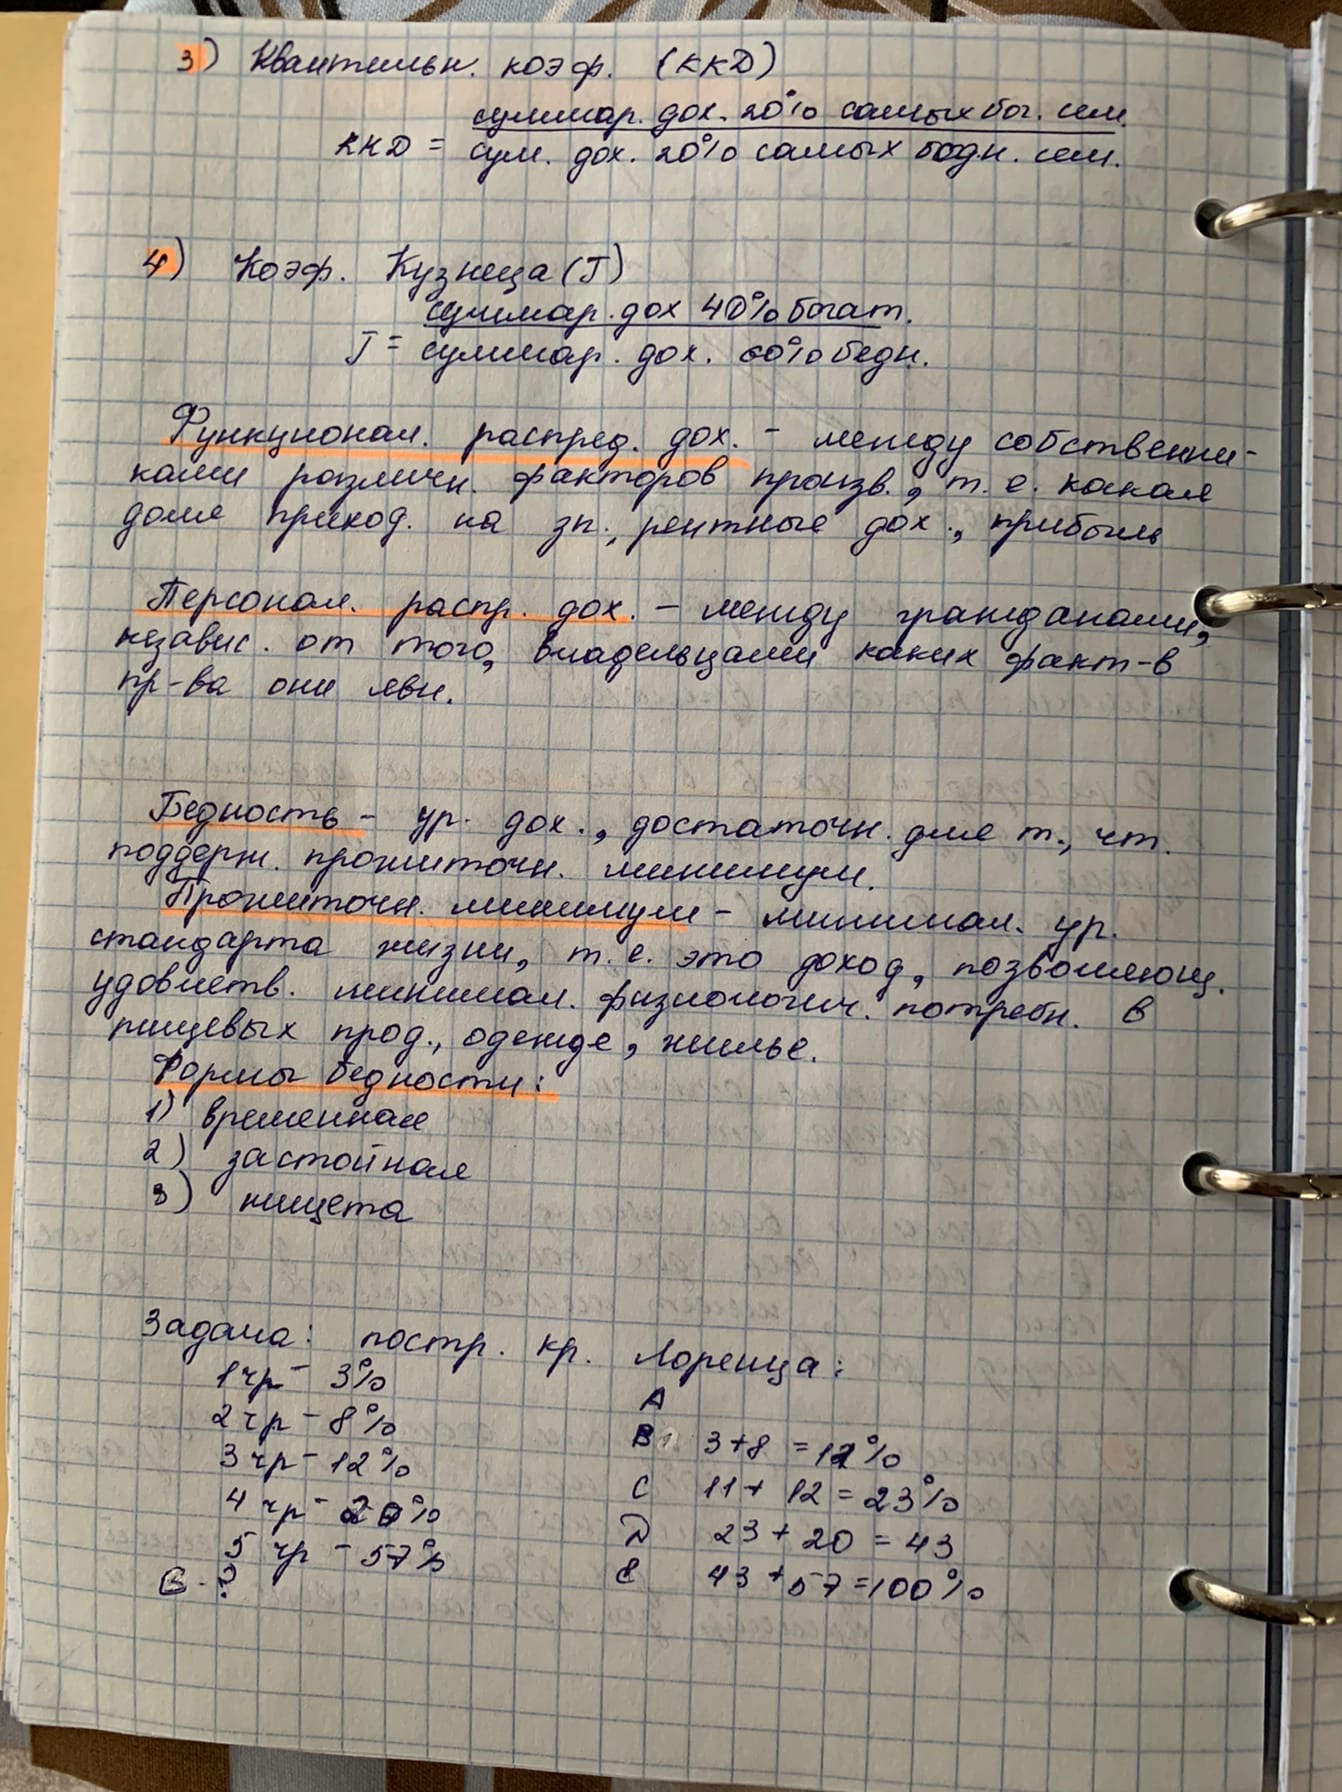 3) Квантильн. коэф. (ККД)
суммар. дох. 20% самых бог. сем.
ККД = сум. дох. 20% самых бедн. сем.
4) Коэф. Кузнеца (J)
суммар. дох 40% богат.
J = суммар. дох. 60% бедн.
Функционал. распред. дох. - между собственни-
ками различн. факторов произв., т. е. какая
доля приход. на зп, рентные дох., прибыль
Персонал. распр. дох. - между гражданами,
независ. от того, владельцами каких факт-в
пр-ва они явл.
Бедность - ур. дох., достаточн. для т., чт.
поддерж. прожиточн. минимум.
Прожиточн. минимум - минимал. ур.
стандарта жизни, т. е. это доход, позволяющ.
удовлетв. минимал. физиологич. потребн. в
пищевых прод., одежде, жилье.
Формы бедности:
1) временная
2) застойная
3) нищета
Задача: постр. кр. Лоренца:
1 гр - 3%
A
2 гр - 8%
B 3+8 = 12%
3 гр - 12%
C 11 + 12 = 23%
4 гр - 20%
D 23 + 20 = 43
5 гр - 57%
E 43 + 57 = 100%
G - ?